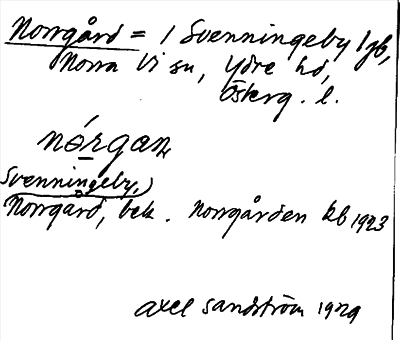 Norrgård = / Svenningeby lgb,
Norra Vi sn, Ydre hd,
Österg. l.
nǿrgaṉ
Svenningeby,
Norrgård, bek. Norrgården kb 1923
Axel Sandström 1929